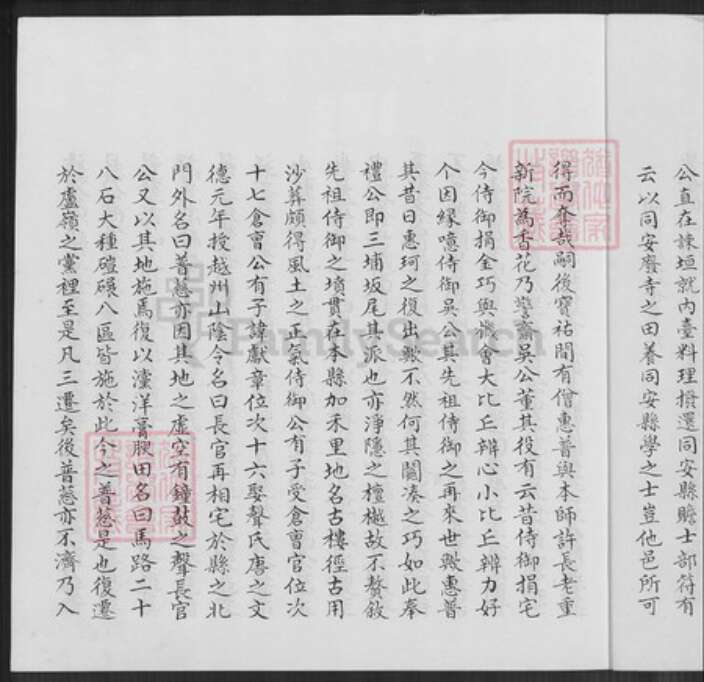 公直在諫垣就內臺料理撥還同安縣贍士部符有
云以同安廢寺之田養同安縣學之士豈他邑所可
得而奪哉嗣後寶祐間有僧惠普與本師許長老重
新院為香花乃警齋吳公董其役有云昔侍御捐宅
今侍御捐金巧與機會大比丘辨心小比丘辨力好
个因緣噫侍御吳公其先祖侍御之再來世歟惠普
其昔日惠珂之復出歟不然何其闔湊之巧如此奉
禮公即三埔坂尾其派也亦淨隱之檀樾故不贅敍
先祖侍御之墳貫在本縣加禾里地名古樓徑古用
沙葬頗得風土之正氣侍御公有子受倉曹官位次
十七倉曹公有子諱獻章位次十六娶聲氏唐之文
德元年授越州山陰令名曰長官再相宅於縣之北
門外名曰普慈亦因其地之虛空有鐘鼓之聲長官
公又以其地施焉復以瀍洋膏腴田名曰馬路二十
八石大種磑碾八區皆施於此今之普慈是也復遷
於盧嶺之黨裡至是凡三遷矣後普慈亦不濟乃入
FamilySearch